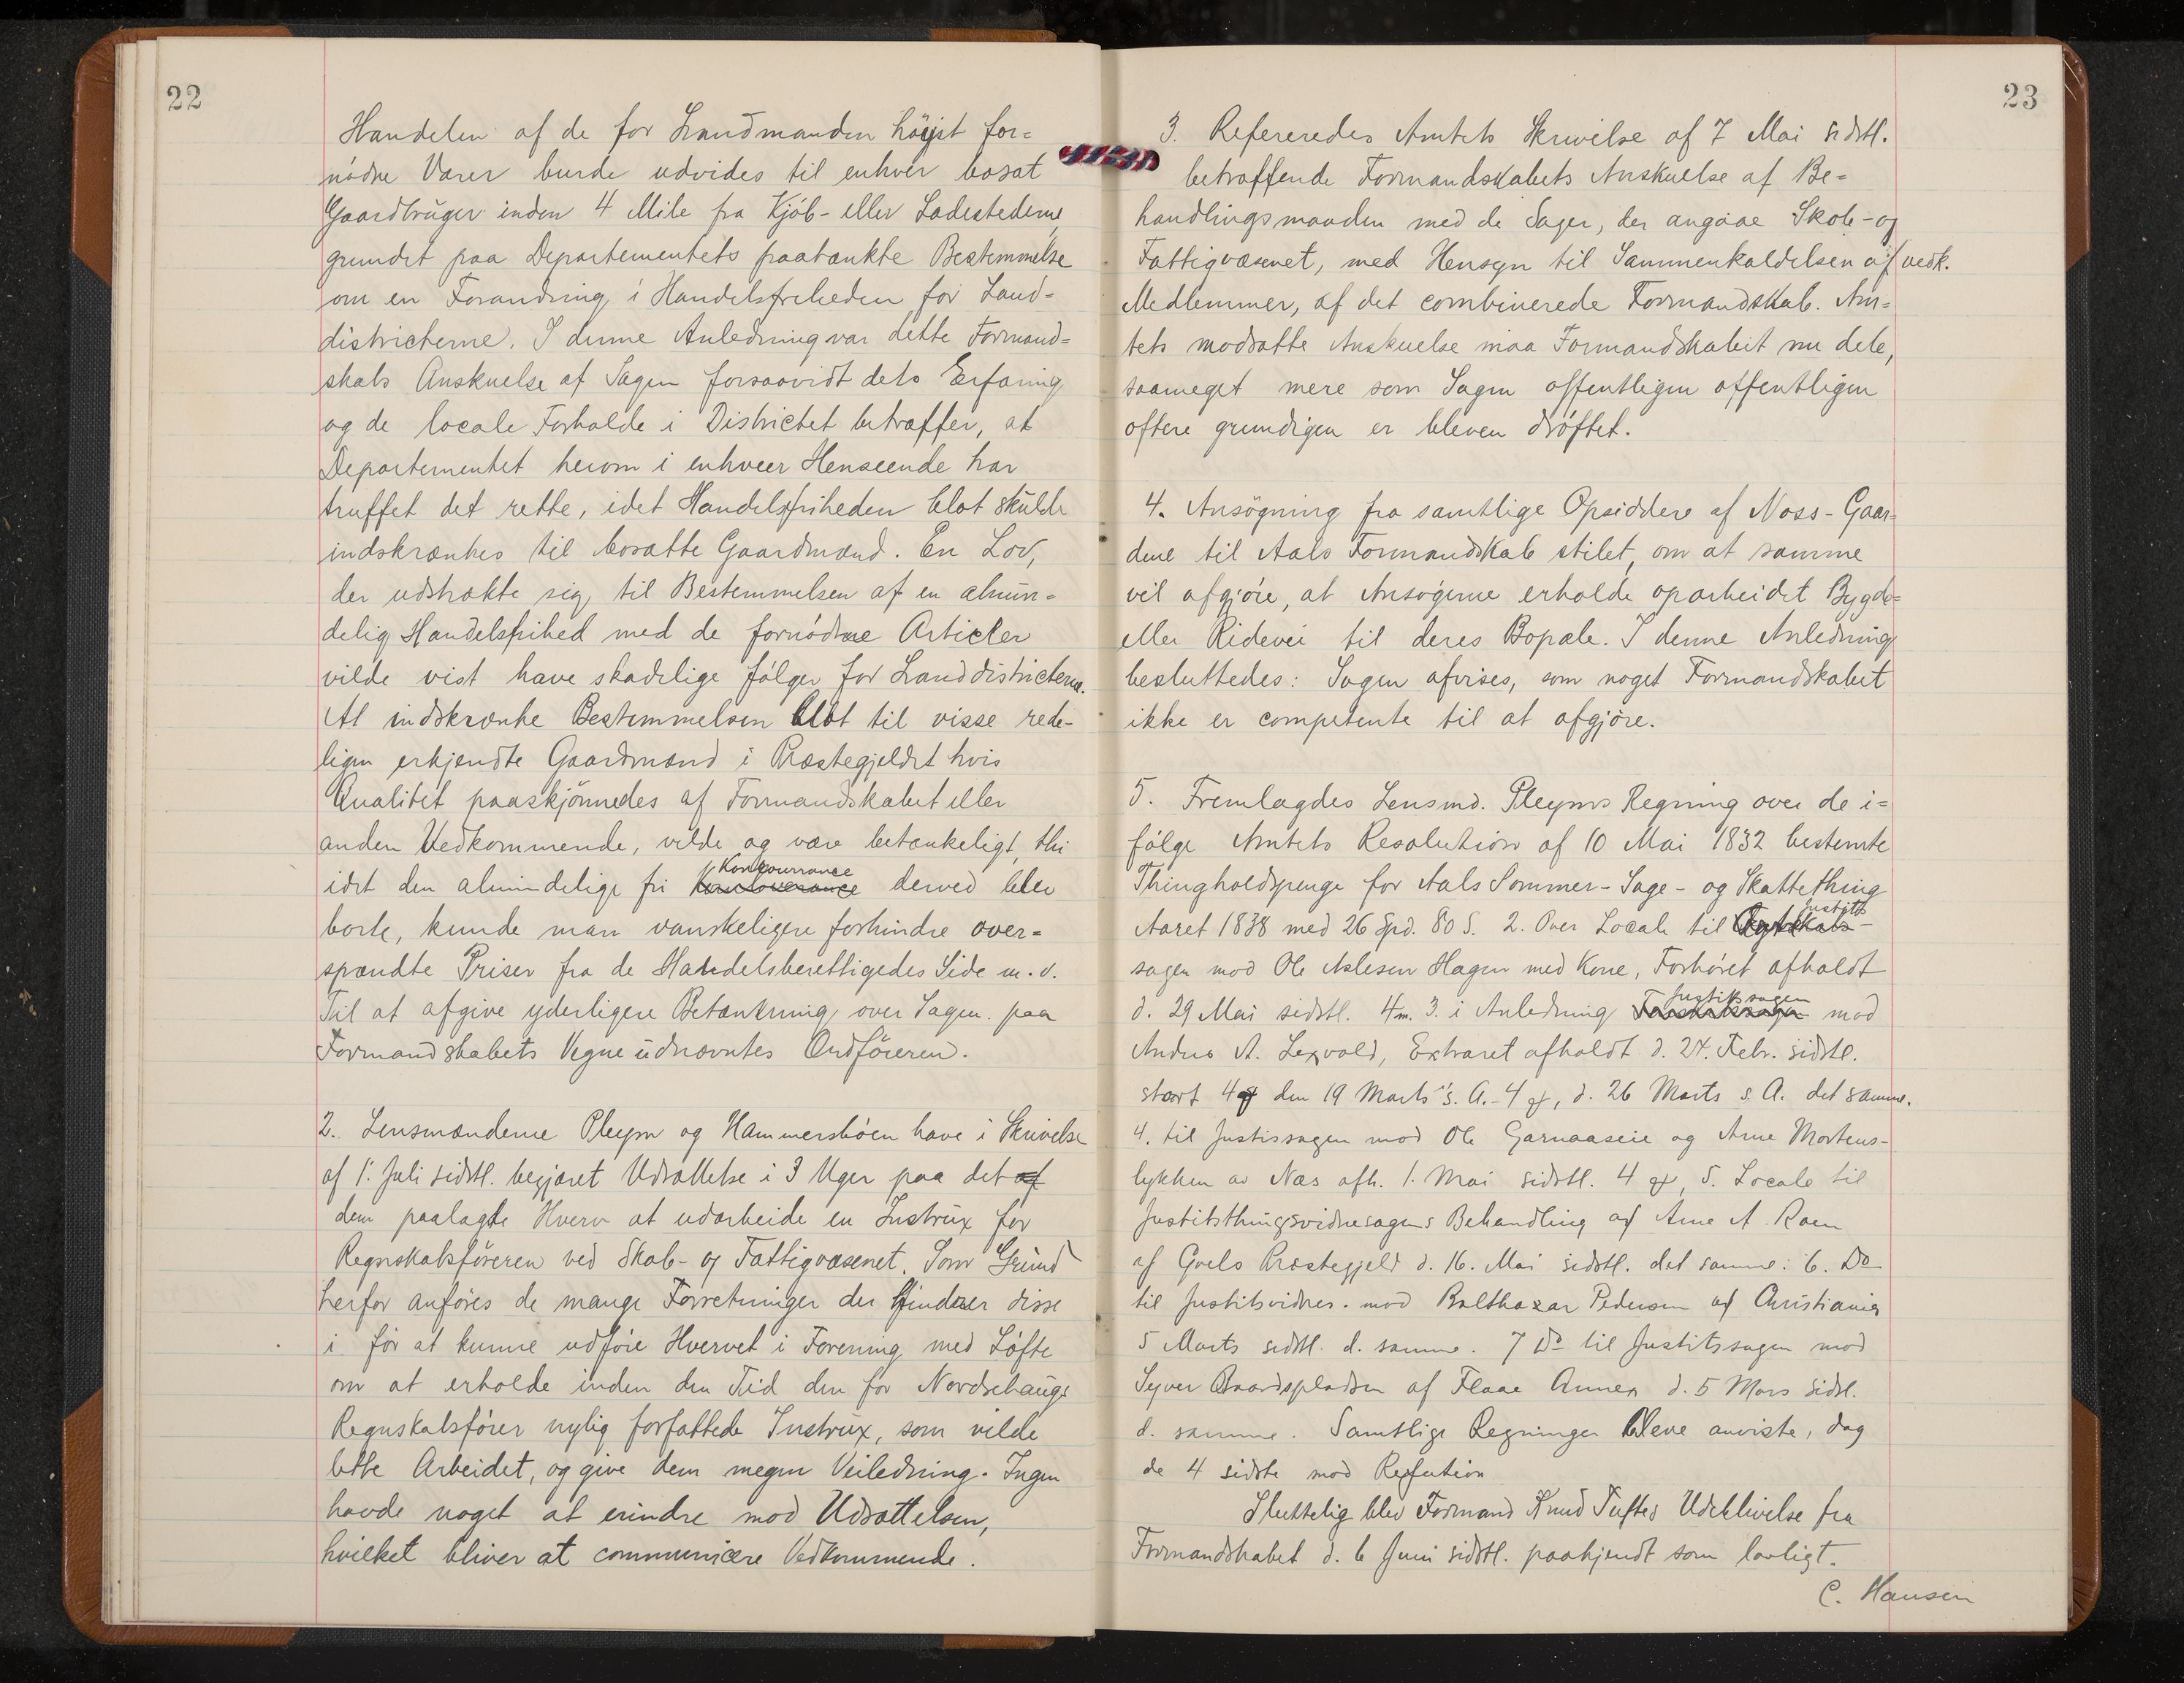 22
Handelen af de for Landmanden höyst for=
nödne Varer burde udvides til enhver bosat
Gaardbruger inden 4 Mile fra Kjöb- eller Ladestederne,
grundet paa Departementets paatænkte Bestemmelse
om en Forandring i Handelsfriheden for Land=
districterne. I denne Anledning var dette Formand=
skabs Anskuelse af Sagen forsaavidt dets Erfaring
og de locale Forholde i Districtet betræffer, at
Departementet herom i enhveer Henseende har
truffet det rette, idet Handelsfriheden blot skulde
indskrænkes til bosatte Gaardmænd. En Lov,
der udstrakte sig til Bestemmelsen af en almin=
delig Handelsfrihed med de fornödne Articler
vilde vist have skadelige fölger for Landdistricterne.
At indskrænke Bestemmelsen blot til visse rede-
ligen erkjendte Gaardmænd i Præstegjeldet hvis
Qualitet paaskjönnedes af Formandskabet eller
anden Vedkommende, vilde og være betænkeligt, thi
idet den almindelige fri Konkourrance derved blev
borte, kunde man vanskeligere forhindre over=
spændte Priser fra de Handelsberettigedes Side m. v.
Til at afgive yderligere Betænkning over Sagen paa
Formandskabets Vegne udnævntes Ordföreren.
2. Lensmænderne Pleym og Hammersböen have i Skrivelse
af 1. Juli sidstl. begjæret Udsættelse i 3 Uger paa det af
dem paalagte Hverv at udarbeide en Instrux for
Regnskabsföreren ved Skole- og Fattigvæsenet. Som Grund
herfor anföres de mange Forretninger der hindrer disse
i för at kunne udföre Hvervet i Forening med Löfte
om at erholde inden den Tid den for Nordrehaugs
Regnskabsförer nylig forfattede Instrux, som vilde
lette Arbeidet, og give dem megen Veiledning. Ingen
havde noget at erindre mod Udsættelsen,
hvilket bliver at communicere Vedkommende.
23
3. Refereredes Amtets Skrivelse af 7 Mai sidstl.
betræffende Formandskabets Anskuelse af Be=
handlingsmaaden med de Sager, der angaae Skole- og
Fattigvæsenet, med Hensyn til Sammenkaldelsen af vedk.
Medlemmer, af det combinerede Formandskab. Am=
tets modsatte Anskuelse maa Formandskabet nu dele,
saameget mere som Sagen offentligen offentligen
oftere grundigen er bleven dröftet.
4. Ansögning fra samtlige Opsiddere af Noss-Gaar=
dene til Aals Formandskab stilet, om at samme
vil afgjöre, at Ansögerne erholde oparbeidet Bygde=
eller Ridevei til deres Bopæle. I denne Anledning
besluttedes: Sagen afvises, som noget Formandskabet
ikke er competente til at afgjöre.
5. Fremlagdes Lensmd. Pleyms Regning over de i=
fölge Amtets Resolution af 10 Mai 1832 bestemte
Thingholdspenge for Aals Sommer- Sage- og Skattething
Aaret 1838 med 26 Spd. 80 S. 2. Over Locale til Justits-
sagen mod Ole Aslesen Hagen med Kone, Forhöret afholdt
d. 29 Mai sidstl. 4 m. 3. i Anledning Justitssagen mod
Andres A. Lexvold, Extraret afholdt d. 24. Febr. sidstl.
start 4 den 19 Marts s. A. 4, d. 26 Marts s. A. det samme.
4. til Justissagen mod Ole Garnaaseie og Arne Mortens-
lykken av Næs afh. 1. Mai sidstl. 4, 5. Locale til
Justitsthingsvidnesagens Behandling af Arne A. Roen
af Goels Præstegjeld d. 16. Mai sidstl. det samme: 6. Do
til Justitsvidnes. mod Balthazar Pedersen af Christiania
5 Marts sidstl. d. samme. 7 Do til Justitssagen mod
Syver Baardspladsen af Flaae Annex d. 5 Mars sidstl.
d. samme. Samtlige Regninger bleve anviste, dog
de 4 sidste mod Refution
Sluttelig blev Formand Knud Tuftes Udeblivelse fra
Formandskabet d. 6 Juni sidstl. paakjendt som lovligt.
C. Hansen